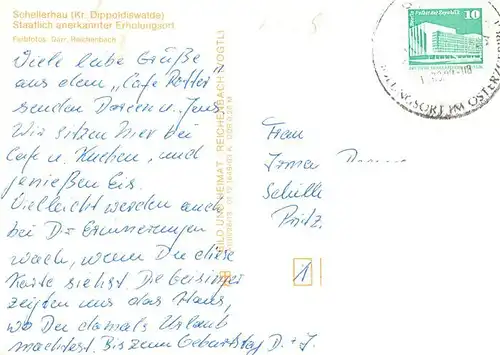 Schellerhau (Kr. Dippoldiswalde)
Staatlich anerkannter Erholungsort
Farbfotos: Darr, Reichenbach
Viele liebe Grüße
aus dem „Cafe Rotter"
senden Doreen u. Jens
Wir sitzen hier bei
Cafe u. Kuchen, und
genießen Eis.
Vielleicht werden auch
bei Dir Erinnerungen
wach, wenn Du diese
Karte siehst. Die Geisinger
zeigten uns das Haus,
wo Du damals Urlaub
machtest. Bis zum Geburtstag D. + J.
BILD UND HEIMAT REICHENBACH (VOGTL)
10
ERHOLUNGSORT IM OSTERZGEBIRGE
Frau
Irma
Schulle
Pritz.
1